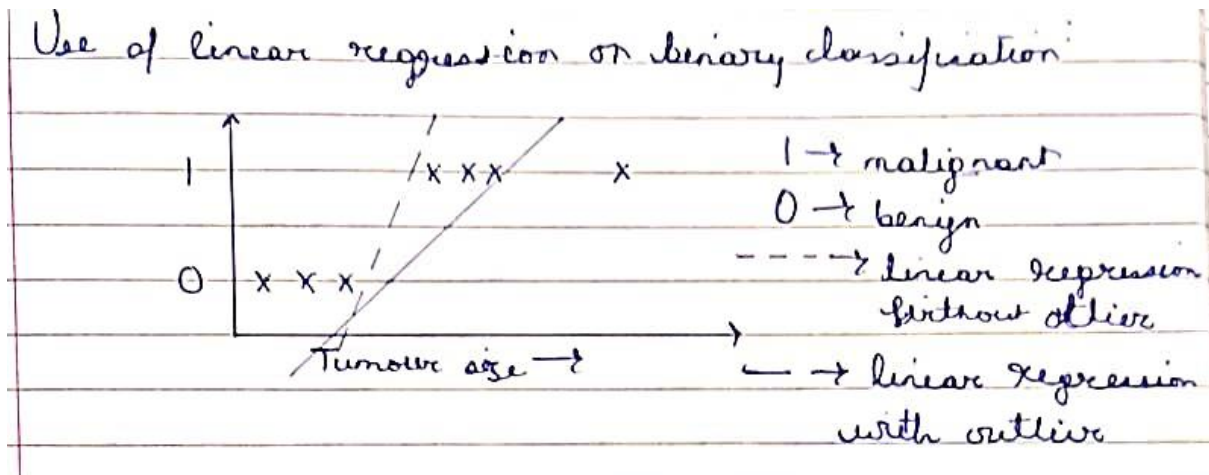 Use of linear reggression on binary classification
1
1 → malignant
0 → benign
0
----→ linear regression
without otlier
Tumour size →
— → linear regression
with outlier